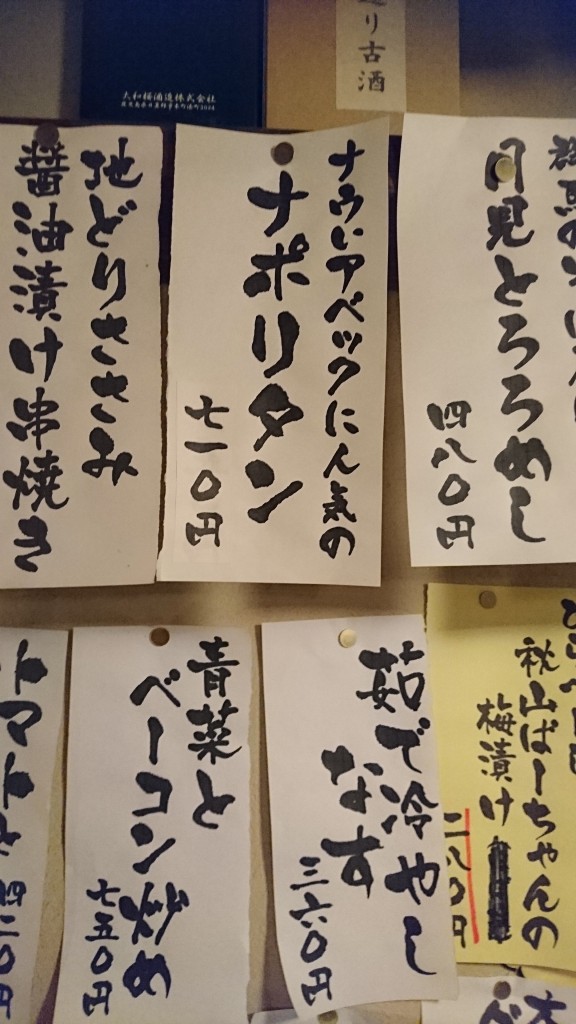 大和桜酒造株式会社
り古酒
月見とろろめし
四八〇円
ナウいアベックに人気の
ナポリタン
七一〇円
地どりささみ
醤油漬け串焼き
秋山ばーちゃんの
梅漬け
二八〇円
茹で冷やし
なす
三六〇円
青菜と
ベーコン炒め
七五〇円
トマト
四二〇円